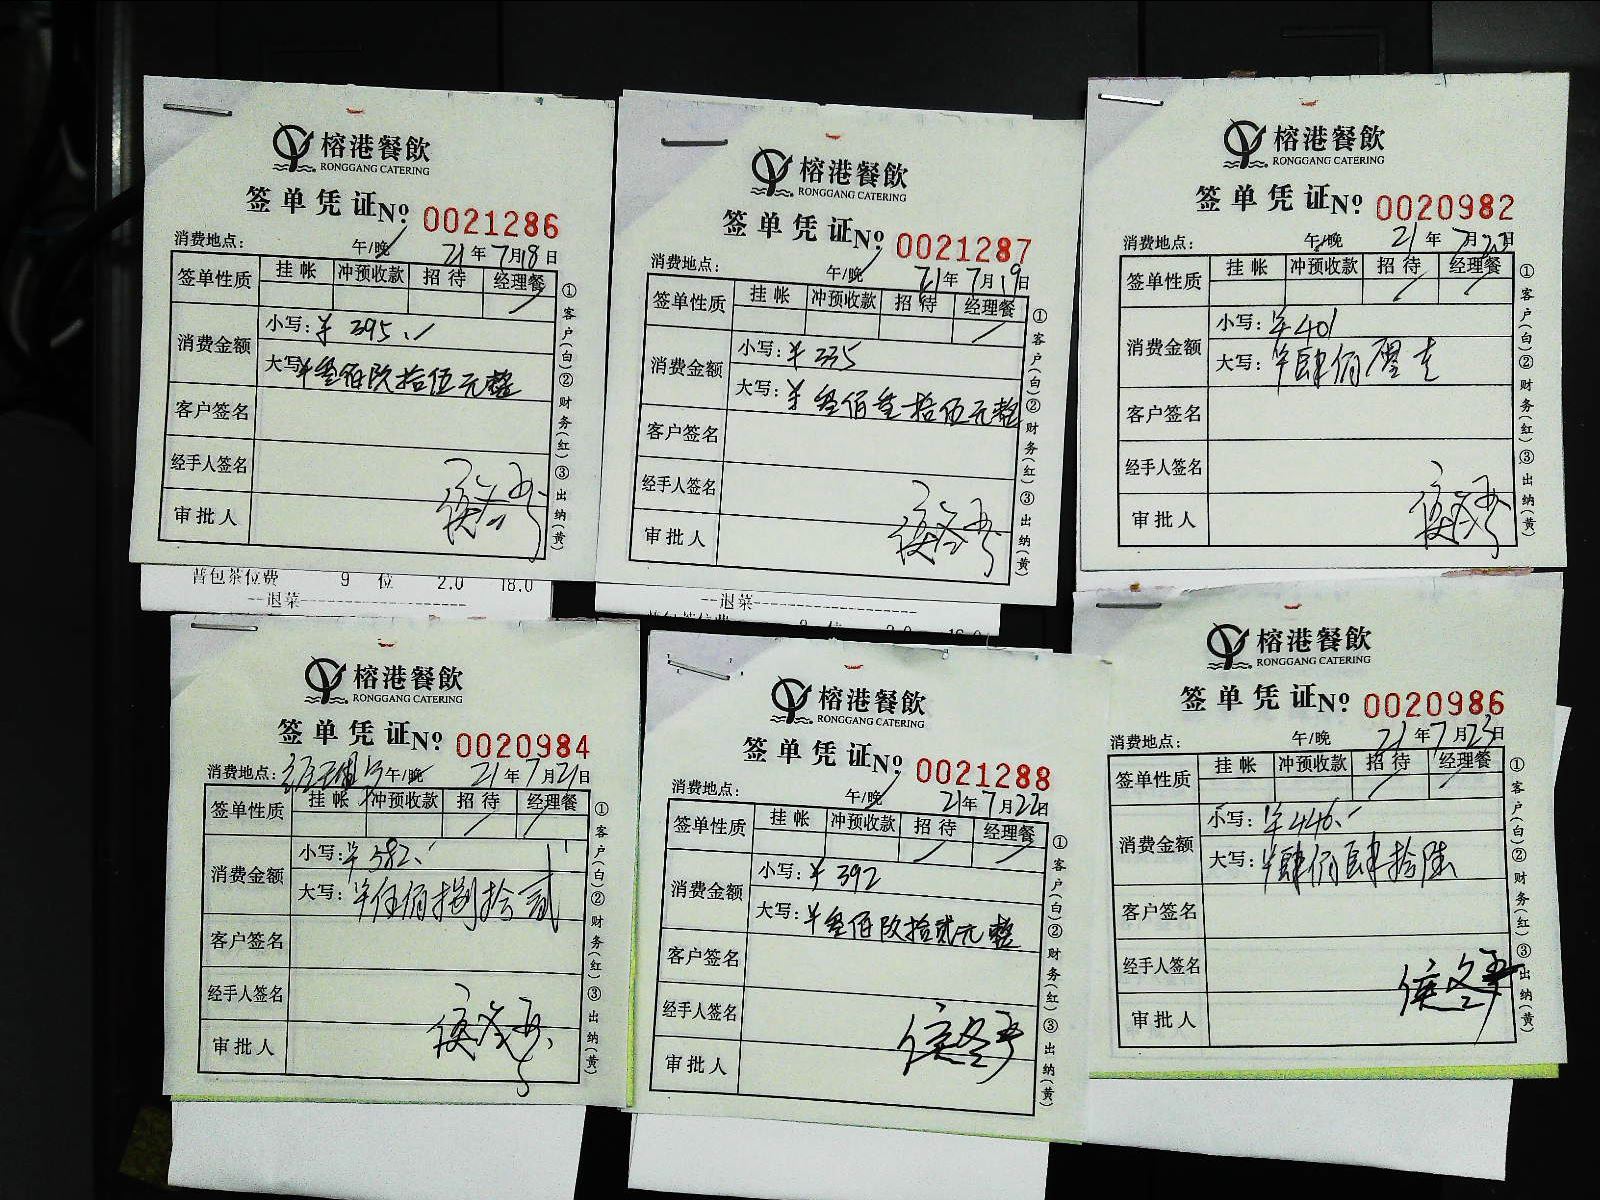 榕港餐飲
RONGGANG CATERING
签单凭证 №. 0021286
消费地点: 午/晚 21年7月18日
签单性质 挂帐 冲预收款 招待 经理餐
消费金额 小写: ¥395.
大写: ¥叁佰玖拾伍元整
客户签名
经手人签名
审批人
①客户(白)②财务(红)③出纳(黄)
普包茶位费 9 位 2.0 18.0
--退菜--
榕港餐飲
RONGGANG CATERING
签单凭证 №. 0021287
消费地点: 午/晚 21年7月19日
签单性质 挂帐 冲预收款 招待 经理餐
消费金额 小写: ¥335
大写: ¥叁佰叁拾伍元整
客户签名
经手人签名
审批人
①客户(白)②财务(红)③出纳(黄)
--退菜--
榕港餐飲
RONGGANG CATERING
签单凭证 №. 0020982
消费地点: 午/晚 21年7月日
签单性质 挂帐 冲预收款 招待 经理餐
消费金额 小写: ¥401
大写: ¥肆佰零壹
客户签名
经手人签名
审批人
①客户(白)②财务(红)③出纳(黄)
榕港餐飲
RONGGANG CATERING
签单凭证 №. 0020984
消费地点: 午/晚 21年7月21日
签单性质 挂帐 冲预收款 招待 经理餐
消费金额 小写: ¥582.
大写: ¥伍佰捌拾贰
客户签名
经手人签名
审批人
①客户(白)②财务(红)③出纳(黄)
榕港餐飲
RONGGANG CATERING
签单凭证 №. 0021288
消费地点: 午/晚 21年7月22日
签单性质 挂帐 冲预收款 招待 经理餐
消费金额 小写: ¥392
大写: ¥叁佰玖拾贰元整
客户签名
经手人签名
审批人
①客户(白)②财务(红)③出纳(黄)
榕港餐飲
RONGGANG CATERING
签单凭证 №. 0020986
消费地点: 午/晚 21年7月23日
签单性质 挂帐 冲预收款 招待 经理餐
消费金额 小写: ¥446.
大写: ¥肆佰肆拾陆
客户签名
经手人签名
审批人
①客户(白)②财务(红)③出纳(黄)